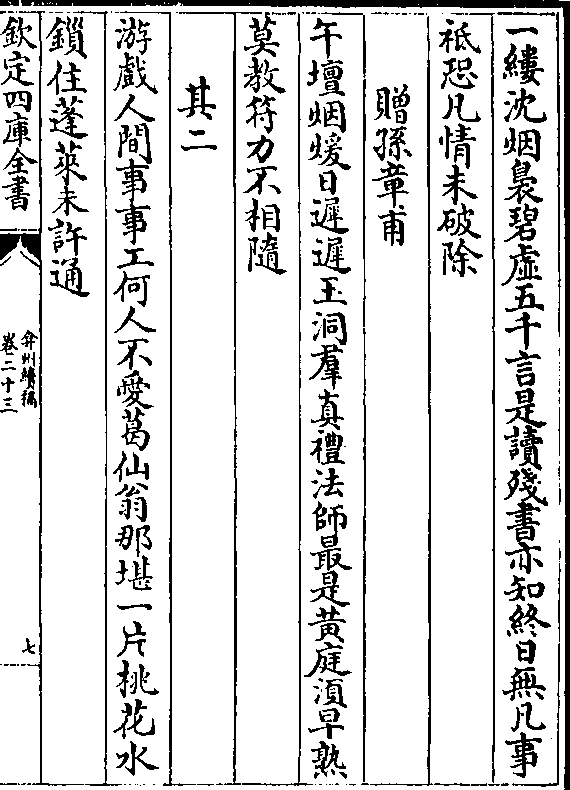 一縷沈烟裊碧虛五千言是讀殘書亦知終日無凡事
祗恐凡情未破除
贈孫章甫
午壇烟煖日遲遲玉洞羣真禮法師最是黃庭湏早熟
莫教符力不相隨
其二
游戲人間事事工何人不愛葛仙翁那堪一片桃花水
鎖住蓬萊未許通
欽定四庫全書
弇州續稿
卷二十三
七